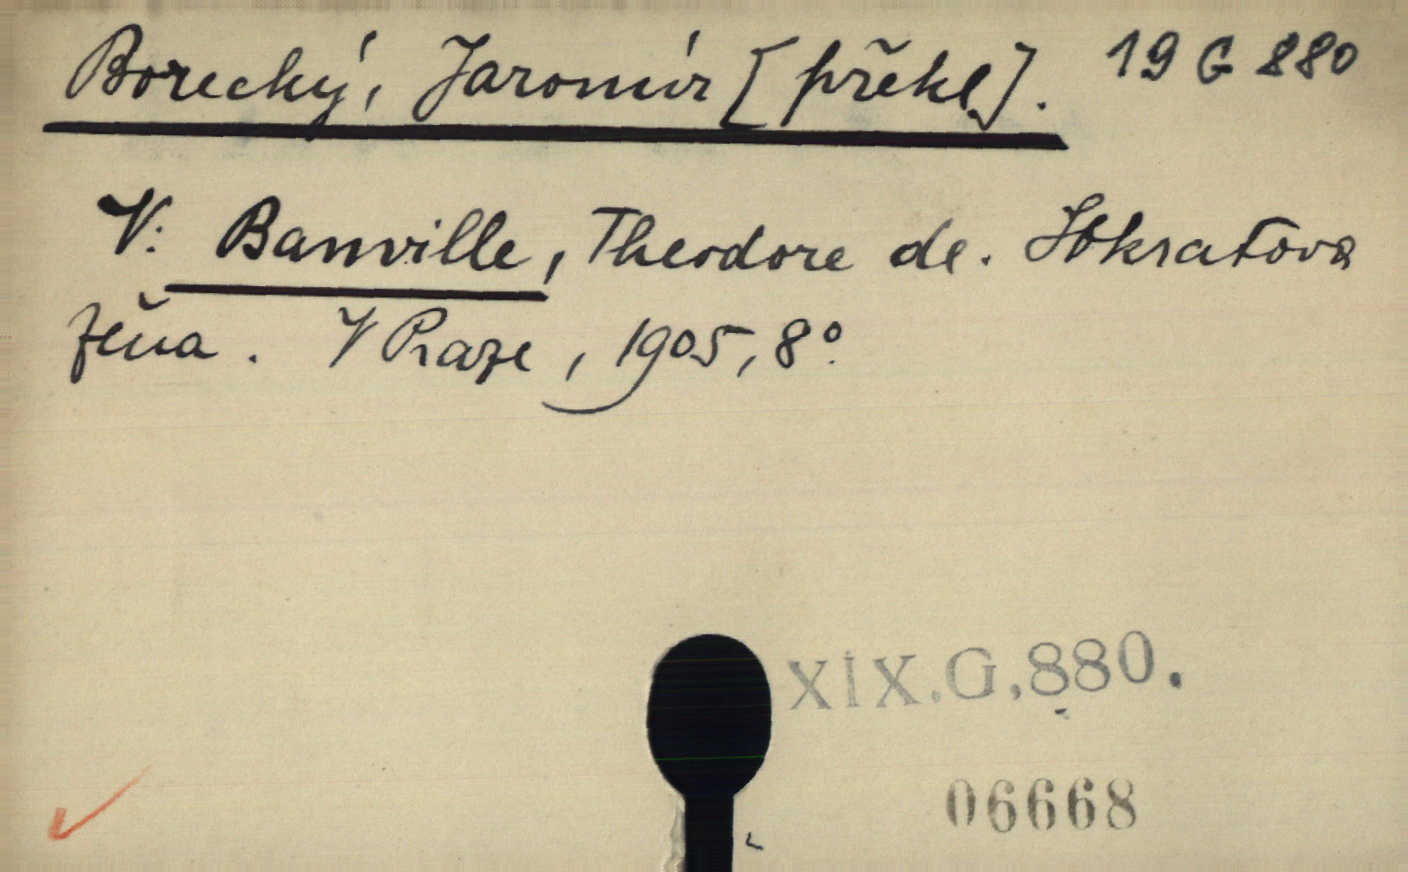 Borecký, Jaromír [překl]. 19 G 880
V: Banville, Theodore de. Sokratova
žena. V Praze, 1905, 8°.
XIX.G.880.
06668